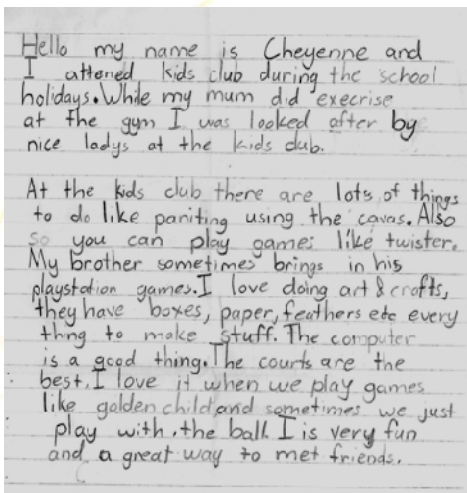 Hello my name is Cheyenne and
I attened kids club during the school
holidays. While my mum did execrise
at the gym I was looked after by
nice ladys at the kids club.
At the kids club there are lots of things
to do like paniting using the cavas. Also
so you can play games like twister.
My brother sometimes brings in his
playstation games. I love doing art & crafts,
they have boxes, paper, feathers etc every
thing to make stuff. The computer
is a good thing. The courts are the
best. I love it when we play games
like golden child and sometimes we just
play with the ball. I is very fun
and a great way to met friends.